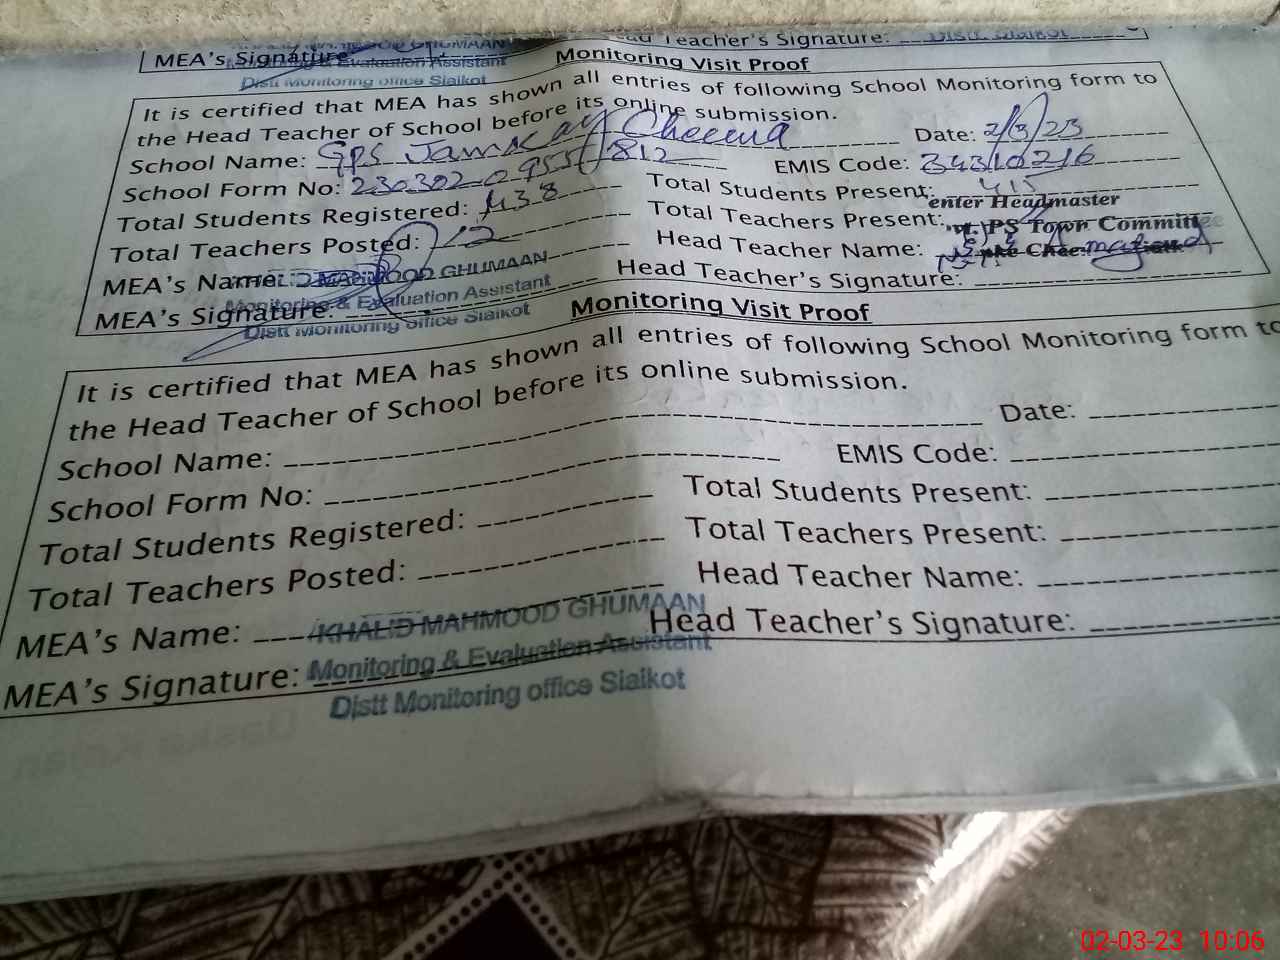 MEA's Signature: Teacher's Signature:
Evaluation Assistant
Distt Monitoring office Sialkot
Monitoring Visit Proof
It is certified that MEA has shown all entries of following School Monitoring form to
the Head Teacher of School before its online submission.
School Name: GPS Jamkay Cheema Date: 2/3/23
School Form No: 230302-0955/812 EMIS Code: 34310216
Total Students Registered: 438 Total Students Present: 415
Total Teachers Posted: 12 Total Teachers Present:
enter Headmaster
PS Town Committee
MEA's Name: MAHMOOD GHUMAAN Head Teacher Name:
Monitoring & Evaluation Assistant
MEA's Signature: Head Teacher's Signature:
Distt Monitoring office Sialkot
Monitoring Visit Proof
It is certified that MEA has shown all entries of following School Monitoring form to
the Head Teacher of School before its online submission.
School Name: Date:
School Form No: EMIS Code:
Total Students Registered: Total Students Present:
Total Teachers Posted: Total Teachers Present:
MEA's Name: KHALID MAHMOOD GHUMAAN Head Teacher Name:
MEA's Signature: Monitoring & Evaluation Assistant Head Teacher's Signature:
Distt Monitoring office Sialkot
02-03-23 10:06